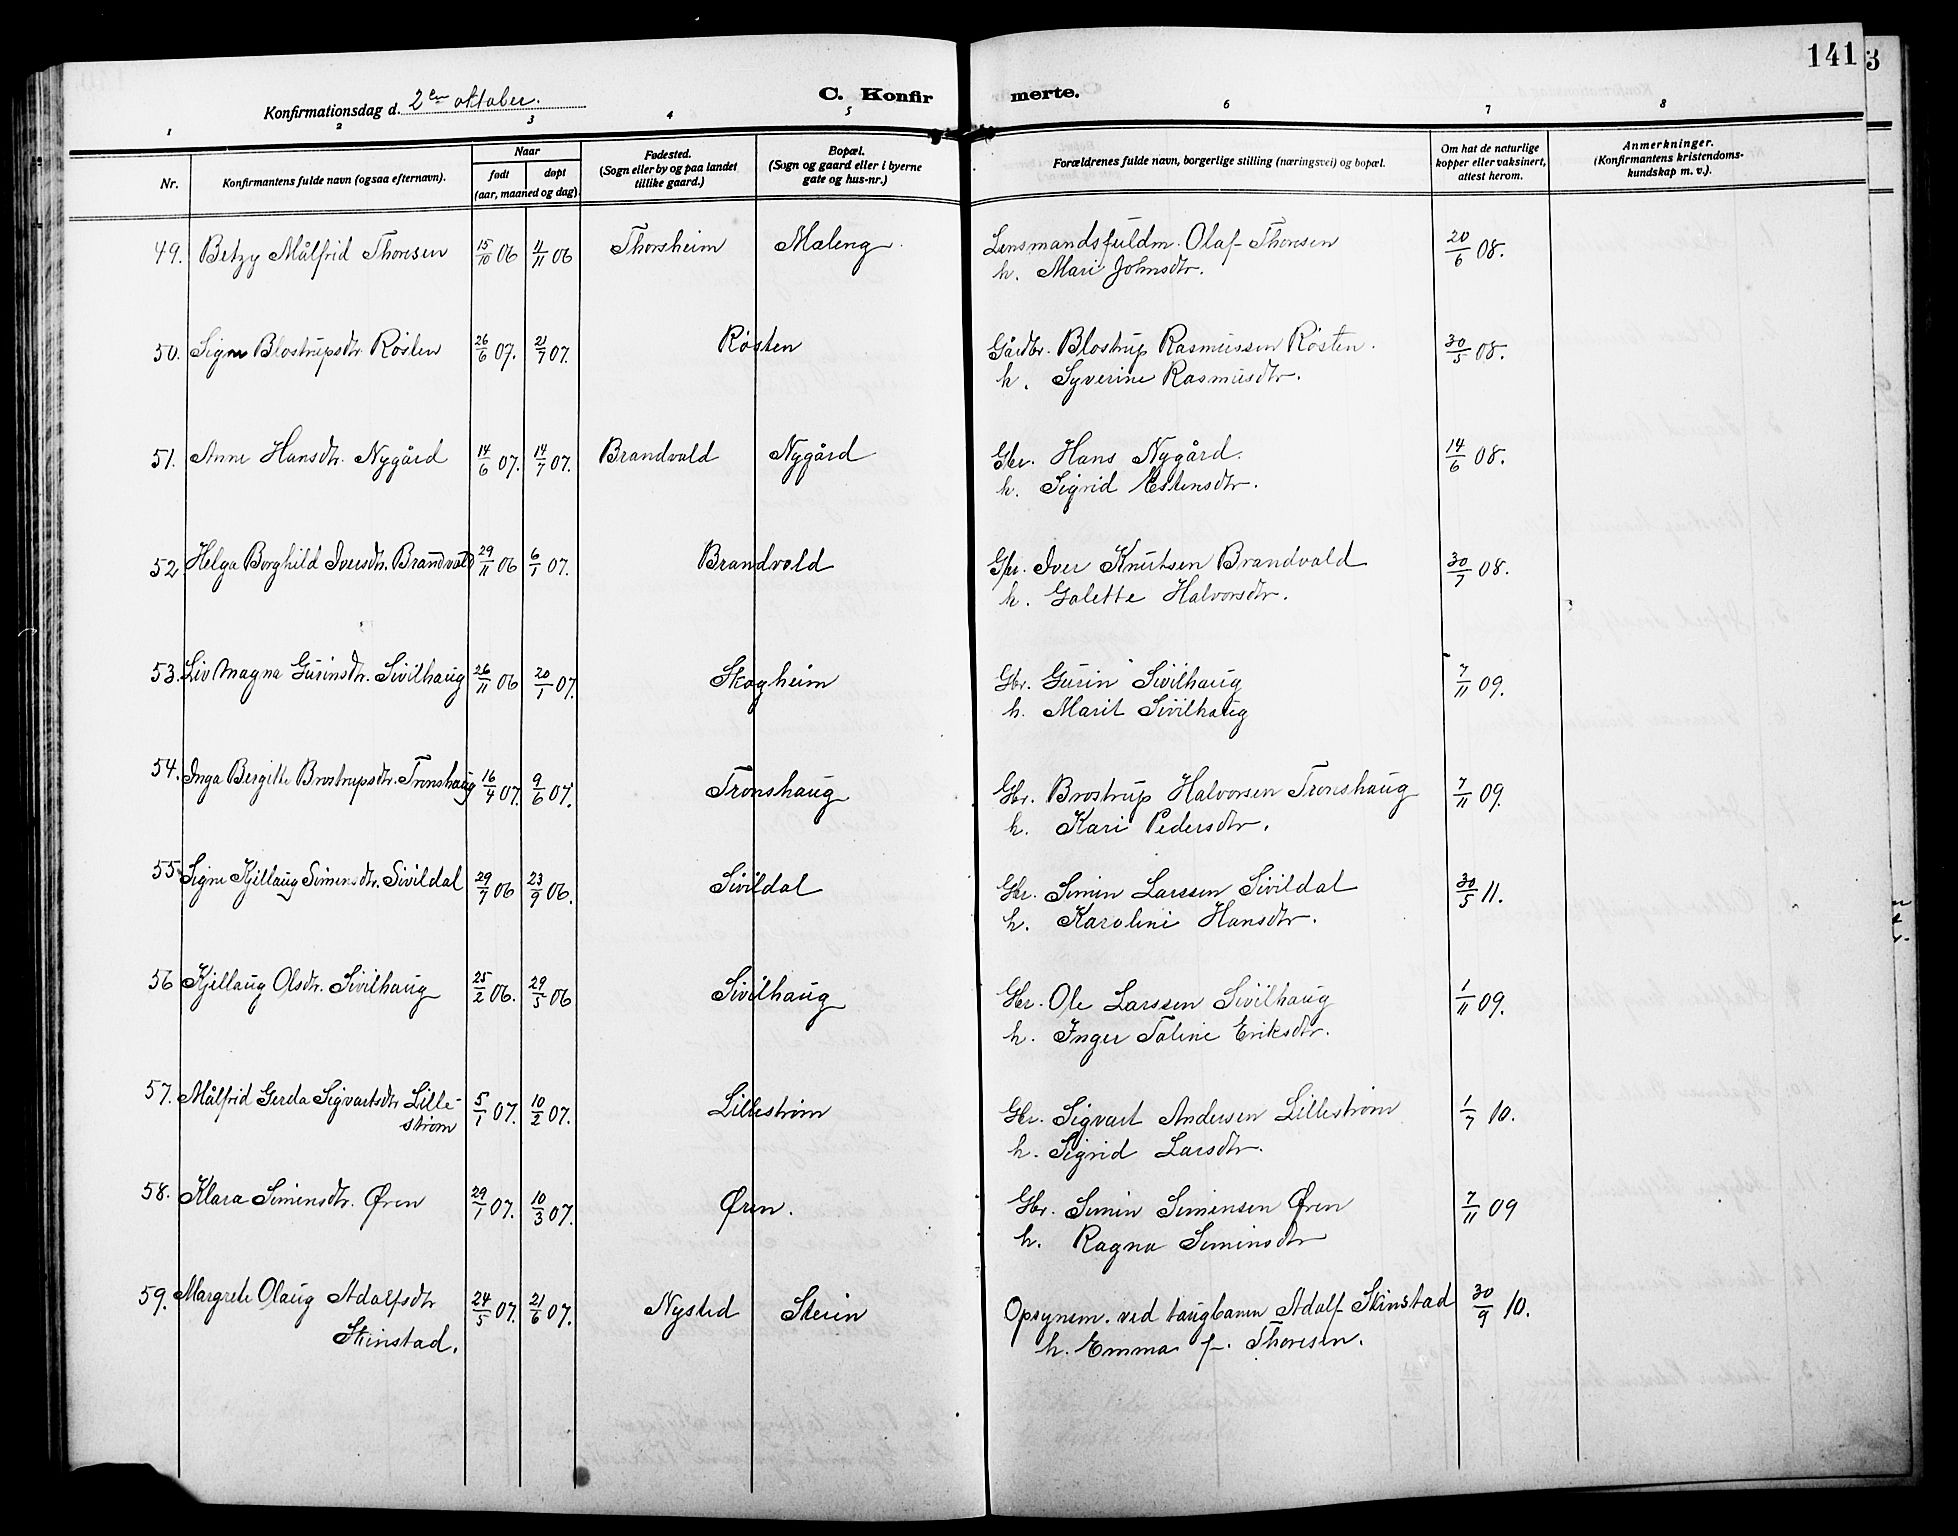 141
3
Konfirmationsdag d. 2den oktober.
C. Konfirmerte.
1 2 3 4 5 6 7 8
Nr.
Konfirmantens fulde navn (ogsaa efternavn).
Naar
født
døpt
(aar, maaned og dag)
Fødested.
(Sogn eller by og paa landet
tillike gaard.)
Bopæl.
(Sogn og gaard eller i byerne
gate og hus-nr.)
Forældrenes fulde navn, borgerlige stilling (næringsvei) og bopæl.
Om hat de naturlige
kopper eller vaksinert,
attest herom.
Anmerkninger.
(Konfirmantens kristendoms-
kundskap m. v.).
49. Betzy Målfrid Thoresen 15/10 06 4/11 06 Thorsheim Maleng. Lensmandsfuldm. Olaf Thoresen 20/6 08.
h. Mari Johnsdtr.
50. Signe Blostrupsdtr. Røsten 26/6 07. 21/7 07. Røsten Gårdbr. Blostrup Rasmussen Røsten. 30/5 08.
h. Syverine Rasmusdtr.
51. Anne Hansdtr. Nygård 14/6 07. 14/7 07. Brandvald Nygård Gbr. Hans Nygård. 14/6 08.
h. Sigrid Estensdtr.
52. Helga Borghild Iversdtr. Brandvold 29/11 06 6/1 07. Brandvold Gbr. Iver Knutsen Brandvald 30/7 08.
h. Galette Halvorsdtr.
53. Liv Magna Gurinsdtr. Sivilhaug 26/11 06 20/1 07. Skogheim Gbr. Gurin Sivilhaug 7/11 09.
h. Marit Sivilhaug
54. Inga Bergitte Brostrupsdtr. Tronshaug 16/4 07. 9/6 07. Tronshaug Gbr. Brostrup Halvorsen Tronshaug 7/11 09.
h. Kari Pedersdtr.
55. Signe Kjellaug Simensdtr. Sivildal 29/7 06 23/9 06. Sivildal Gbr. Simen Larssen Sivildal 30/5 11.
h. Karoline Hansdtr.
56 Kjellaug Olsdtr. Sivilhaug 25/2 06. 29/5 06 Sivilhaug Gbr. Ole Larssen Sivilhaug 1/11 09.
h. Inger Taline Eriksdtr.
57. Målfrid Gerda Sigvartsdtr Lille- 5/1 07. 10/2 07. Lillestrøm Gbr. Sigvart Andersen Lillestrøm 1/7 10.
strøm h. Sigrid Larsdtr.
58. Klara Simensdtr. Øren 29/1 07. 10/3 07. Øren. Gbr. Simen Simensen Øren 7/11 09
h. Ragna Simensdtr
59. Margrete Olaug Adolfsdtr 24/5 07. 21/6 07. Nysted Steien Opsynsm. ved taugbanen Adolf Skinstad 30/9 10.
Skinstad. h. Emma f. Thoresen.